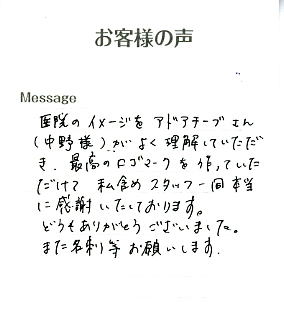 お客様の声
Message
医院のイメージを アドアチーブさん
(中野様)がよく理解していただ
き、最高のロゴマークを作っていた
だけて 私含めスタッフ一同本当
に感謝いたしております。
どうもありがとうございました。
また名刺等お願いします.